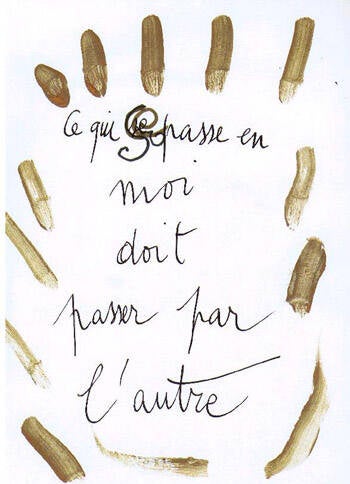 Ce qui se passe en
moi
doit
passer par
l'autre